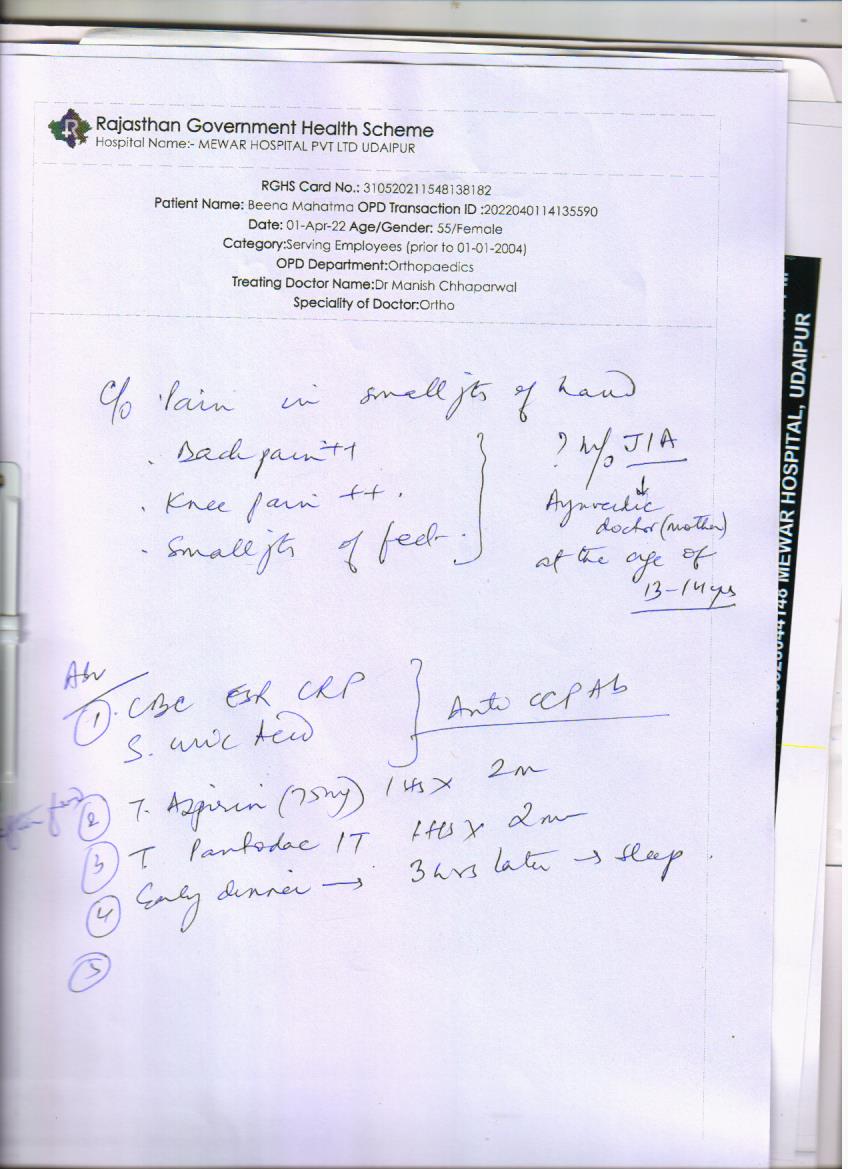 Rajasthan Government Health Scheme
Hospital Name:- MEWAR HOSPITAL PVT LTD UDAIPUR
RGHS Card No.: 310520211548138182
Patient Name: Beena Mahatma OPD Transaction ID :2022040114135590
Date: 01-Apr-22 Age/Gender: 55/Female
Category:Serving Employees (prior to 01-01-2004)
OPD Department:Orthopaedics
Treating Doctor Name:Dr Manish Chhaparwal
Speciality of Doctor:Ortho
c/o Pain in small jts of hand
. Back pain ++
. Knee pain ++ .
. Small jts of feet .
? h/o JIA
↓
Ayurvedic
doctor (mother)
at the age of
13-14 yrs
Adv
1. CBC ESR CRP
S. uric Acid
Anti CCP Ab
2 T. Aspirin (75mg) 1 HS X 2m
3 T. Pantodac IT 1 HS X 2m
4 Early dinner → 3 hrs later → sleep .
5
MEWAR HOSPITAL, UDAIPUR